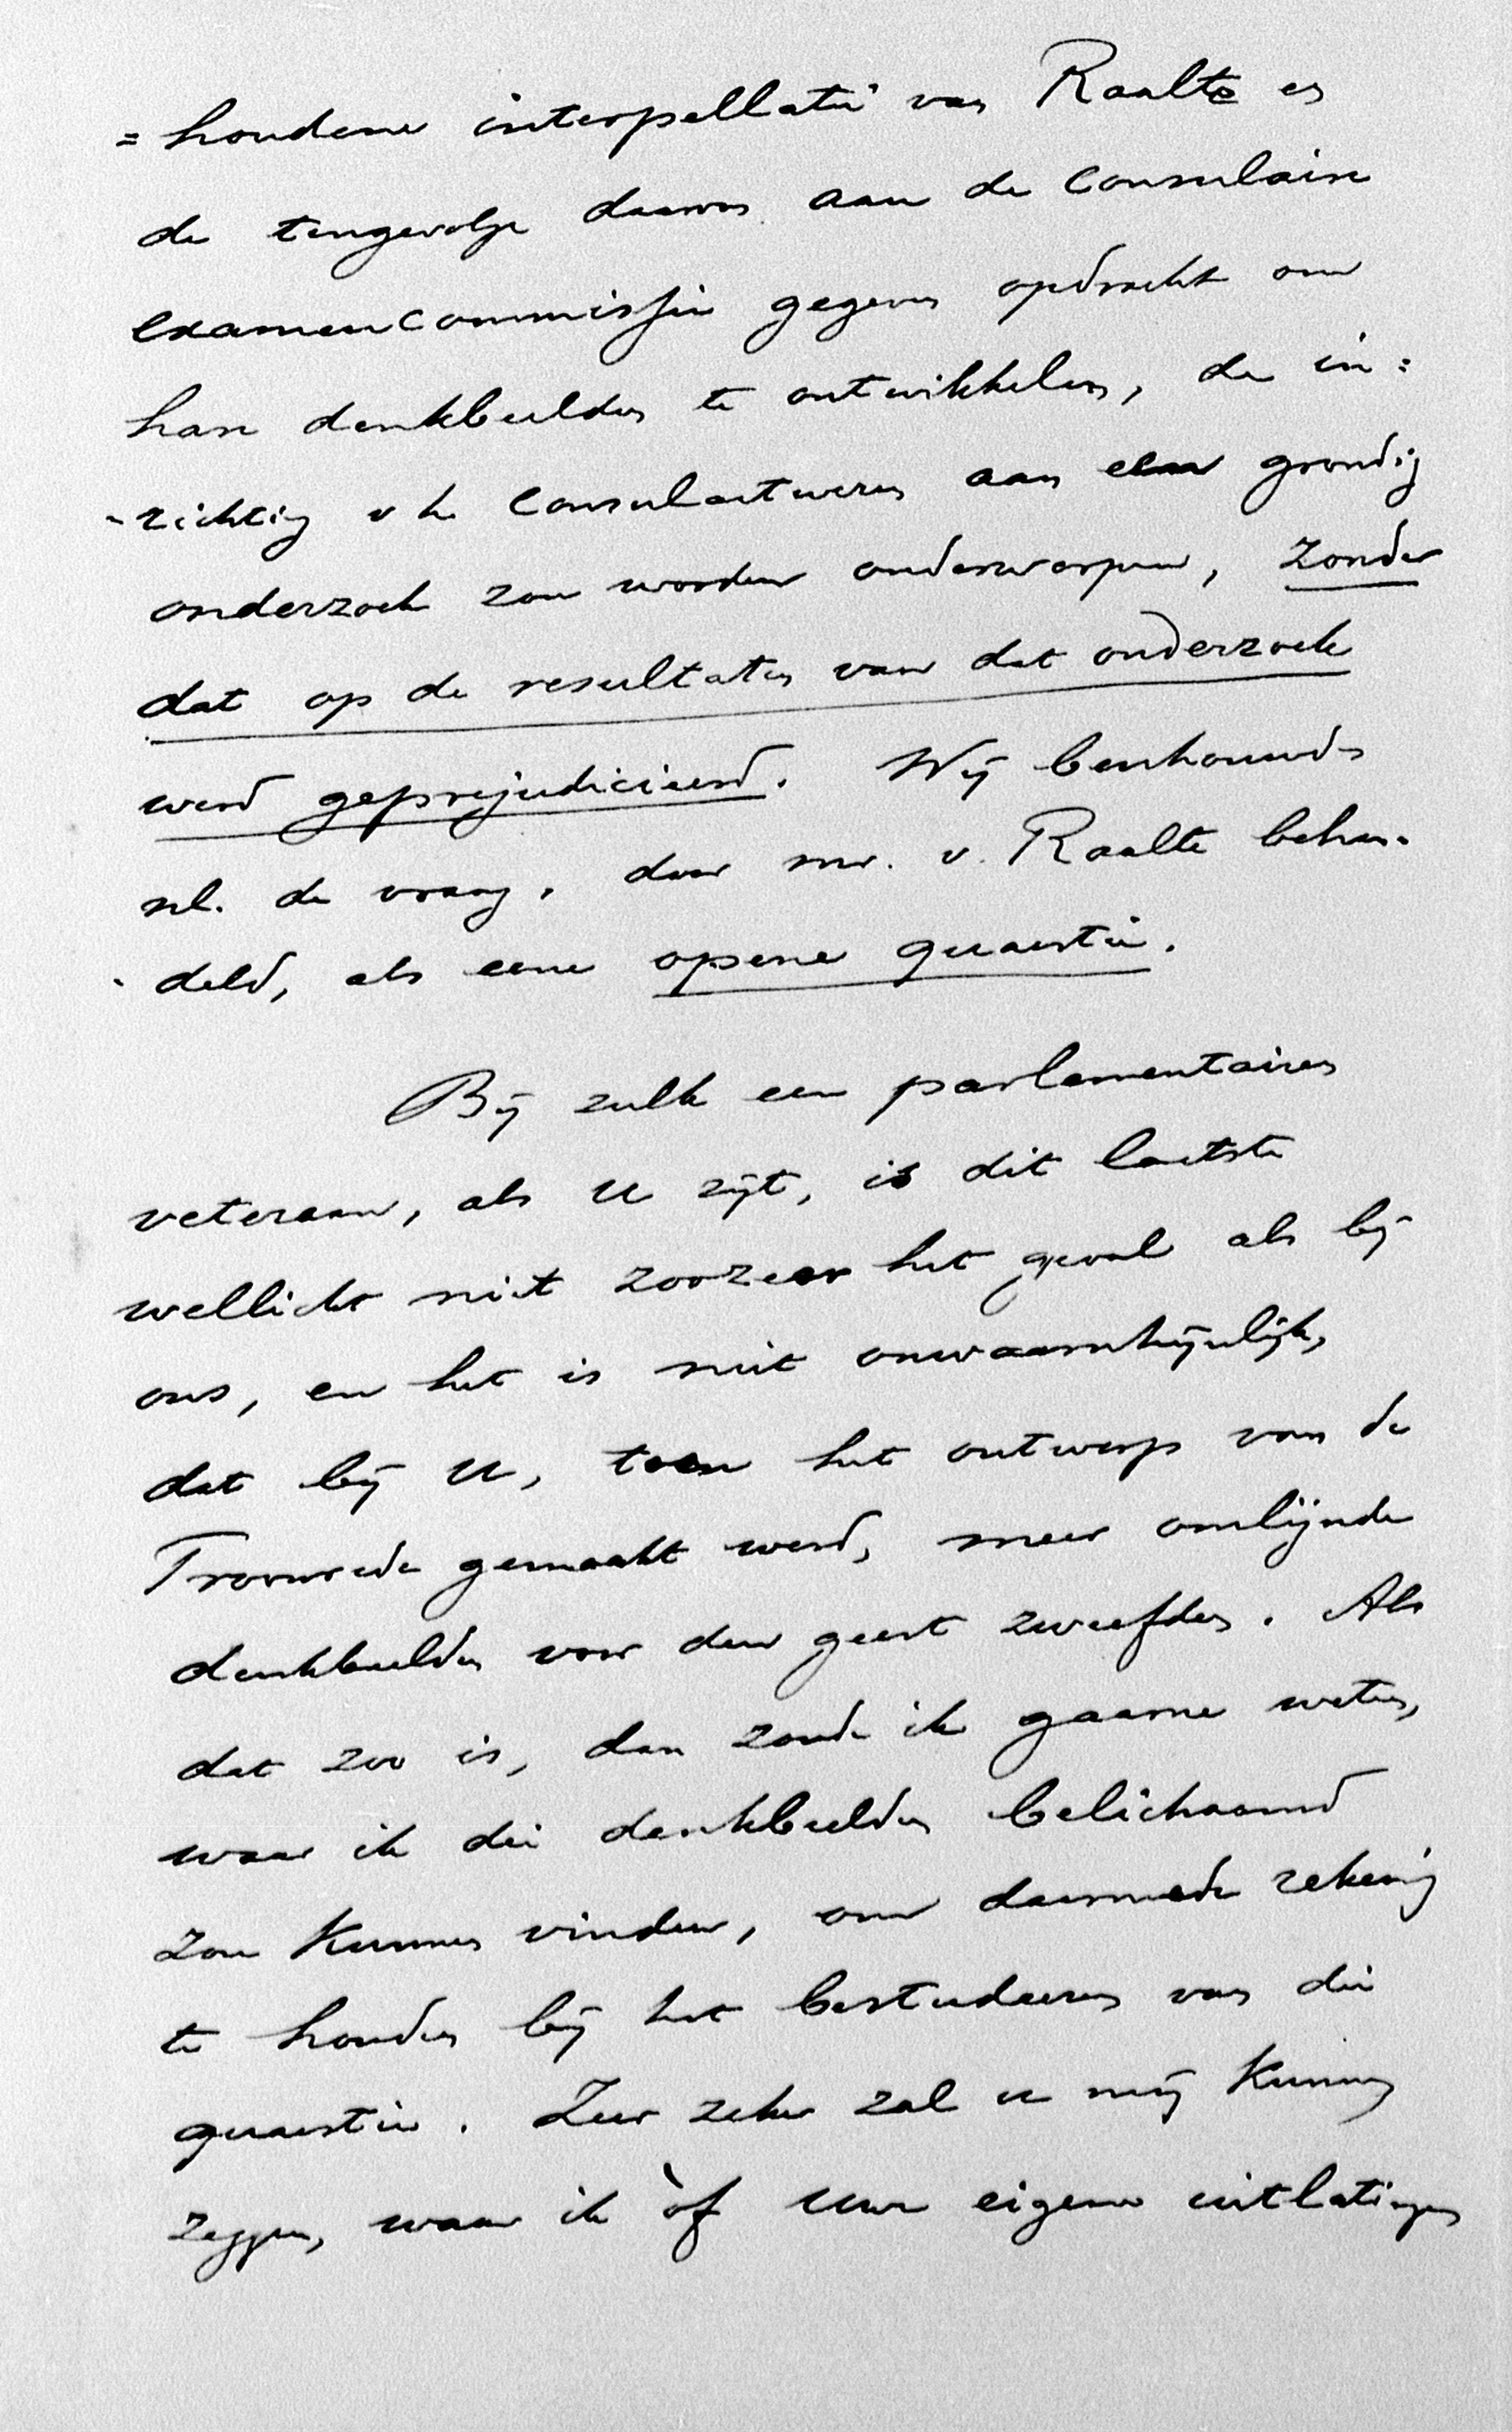 =houdene interpellatie van Raalte en
de tengevolge daarvan aan de Consulaire
examencommissie gegeven opdracht om
hare denkbeelden te ontwikkelen, de in=
-richting v h Consulaatwezen aan een grondig
onderzoek zou worden onderworpen, zonder
dat op de resultaten van dat onderzoek
werd geprejudicieerd. Wij beschouwden
nl. de vraag, door mr. v. Raalte behan-
-deld, als eene opene quaestie.
Bij zulk een parlementairen
veteraan, als U zijt, is dit laatste
wellicht niet zoozeer het geval als bij
ons, en het is niet onwaarschijnlijk,
dat bij U, toen het ontwerp van de
Troonrede gemaakt werd, meer omlijnde
denkbeelden voor den geest zweefden. Als
dat zoo is, dan zoude ik gaarne weten,
waar ik die denkbeelden belichaamd
zou kunnen vinden, om daarmede rekening
te houden bij het bestudeeren van die
quaestie. Zeer zeker zal u mij kunnen
zeggen, waar ik òf Uwe eigene uitlatingen